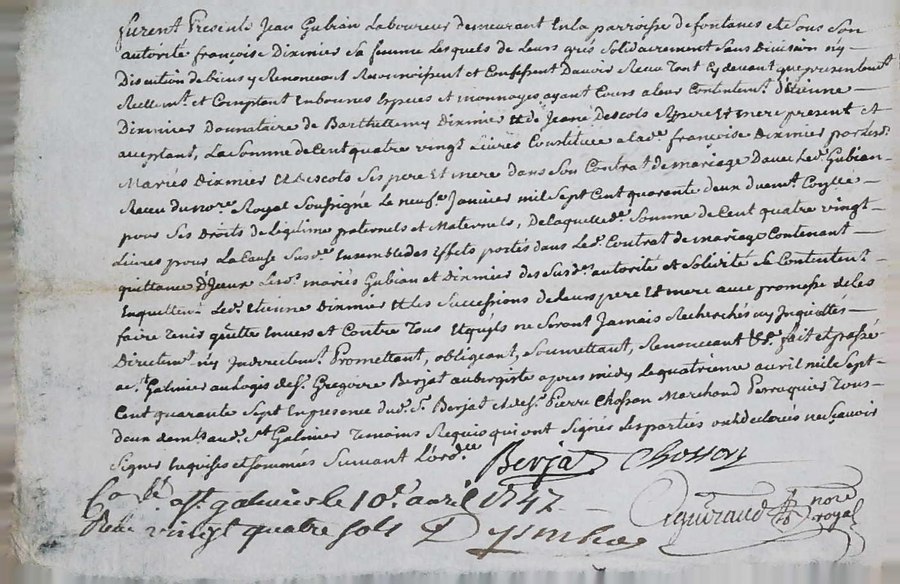 furent Presents Jean Gubian Laboureur demeurant En la parroisse de fontanes et sous son
autorité françoise Dixmier sa femme Lesquels de Leurs grés solidairement sans Division ny
Discution de biens y Renonceant Reconnoissent et Confessent D'avoir Receu Tout Cy devant que présentemt
Reellemt. et Comptant En bonnes Especes et monnoyes ayant Cours a leur Contentemt. d'Etienne
Dixmier Donnataire de Barthellemy Dixmier et de Jeane Descots ses pere Et mere present et
acceptant, La somme de Cent quatre vingt Livres Constituée a lade. françoise Dixmier par lesd.
Mariés Dixmier et Descots ses pere Et mere dans son Contrat de mariage D'avec Led. Gubian
Receu du nore. Royal soussigné Le neufe. Janvier mil sept Cent quarante deux duemt. Conlle
pour ses Droits de légitime paternels et Maternels, De laquelle de. somme de Cent quatre vingt
Livres pour La Cause susde. Ensemble des Effets portés dans Led. Contrat de mariage Contenant
quittance D'Iceux Lesd. mariés Gubian et Dixmier des susd. autorité et solidité se Contentent
En quittent Led. Etienne Dixmier et Les successions de leurs pere Et mere avec promesse de Les
faire Tenir quittes Envers et Contre Tous Et qu'ils ne seront Jamais Recherchés ny Inquiettés
Directemt. ny Indirectemt. Promettant, obligeant, soumettant, Renonceant &a. fait et passé
a St. Galmier au Logis de sr. Gregoire Berjat aubergiste apres midy Le quatrieme avril mil sept
Cent quarante sept En presence dud. sr. Berjat et de sr. Pierre Chosson Marchand Perruquier Tous
deux demts. aud. St. Galmier Temoins Requis qui ont signés Les parties ont declarés ne sçavoir
signer Enquises et sommées suivant L'ordce
Berjat Chosson
Collé a St. galmier le 10e. avril 1747
Reçu vingt quatre sols
nore
royal